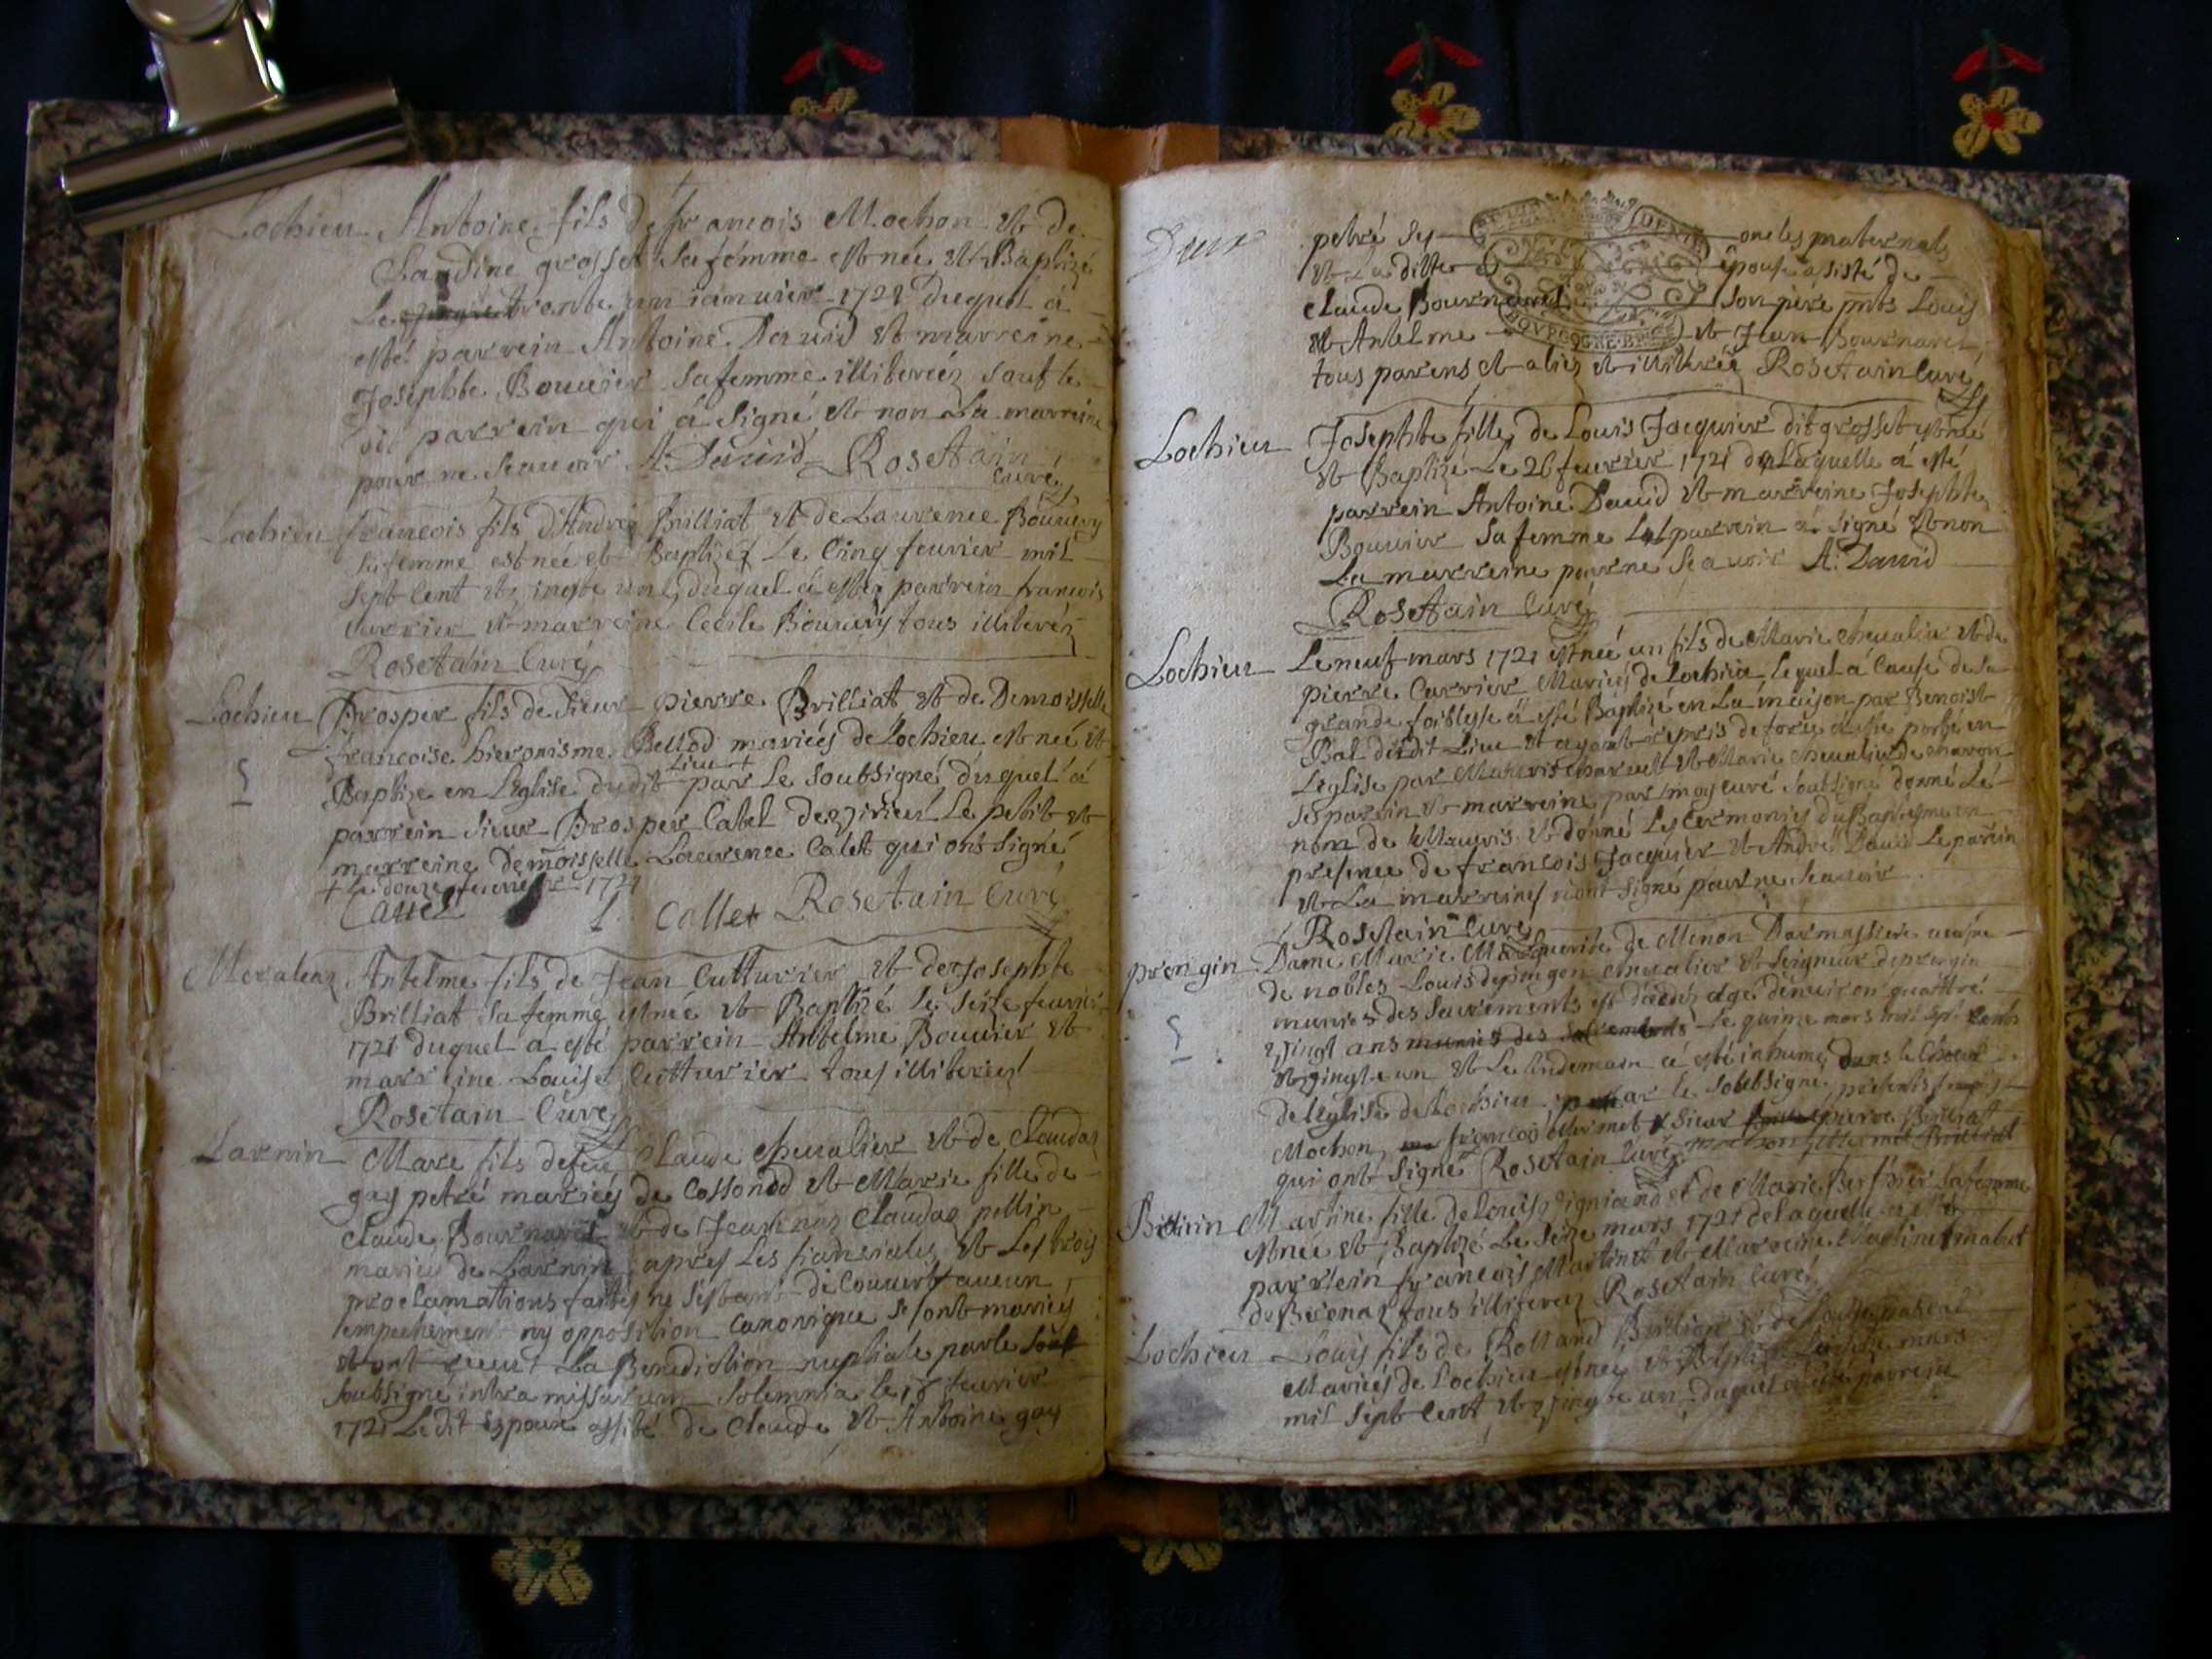 Lochieu Antoine fils de francois Mochon et de
Claudine grosset sa femme est née et Baptizé
Le trente un ianuier 1721 duquel á
esté parrein Antoine Dauid et marreine
Josephte Bouuier sa femme illiteréz sauf le
parrein qui á signé et non La marreine
pour ne scauoir A: Dauid Rosetain
Curé
Lochieu francois fils d'André Brilliat et de Laurence Bouuery
sa femme est née et Baptizéz Le Cinq feurier mil
sept Cent et vingte un duquel á estéz parrein francois
Carrier et marreine Cecile Bouuery tous illiteréz
Rosetain Curé
Lochieu Prosper fils de Sieur pierre Brilliat et de Demoisselle
francoise hieronisme Bellod mariéés de Lochieu est née et
Lieu +
Baptize en L'Eglise dudit par Le soubsigné duquel á
parrein sieur Prosper Calet de virieu Le petit et
marreine demoisselle Laurence Calet qui ont signé
+ Le douze feurier 1721
Callet L Callet Rosetain Curé
Antelme fils de Jean Cutturier et de Josephte
Brilliat sa femme est née et Baptizé Le seize feurier
1721 duquel a esté parrein Antelme Bouuier et
marreine Louise Cutturier tous illiteréz
Rosetain Curé
Larnin Marc fils de feu Claude cheualier et de Claudaz
gay petré mariéés de Cossonod et Marie fille de
Claude Bournaret et de Jeanenaz Claudaz pellin
mariés de Larnin apres Les fiancialles et Les trois
proclamations faittes ne s'estant decouuert aucun
empechement ny opposition Canonique se sont mariéés
et ont receut La Benediction nuptiale par le
soubsigné intra missarum solemnia le 18 feurier
1721 Ledit Espoux assisté de Claude et Antoine gay
Deux
petré ses oncles maternels
et La ditte épouse assisté de
Claude Bournaret son pere pnts Louis
et Antelme et Jean Bournaret
tous parens et aliez et illiteréz Rosetain Curé
Lochieu Josephte fille de Louis Jacquier dit grosset est née
et Baptizé Le 26 feurier 1721 de Laquelle á esté
parrein Antoine Dauid et marreine Josephte
Bouuier sa femme Le parrein á signé et non
La marreine pour ne scauoir A: Dauid
Rosetain Curé
Lochieu Le neuf mars 1721 est née un fils de Marie cheualier et de
pierre Carrier Mariéés de Lochieu Lequel á Cause de sa
grande foiblesse á esté Baptizé en La maison par Benoist
Bal dudit Lieu et ayant repris de force a esté porté en
L'eglise par et Marie cheualier de charon
ses parrein et marreine par moy curé soubsigné donné Le
nom de et donné Les Ceremonies du Baptesme en
presence de francois Jacquier et André Dauid Le parein
et La marreines n'ont signé pour ne scauoir
Rosetain Curé
prengin Dame Marie Marguerite de Menon Darmassiere
de nobles Louis cheualier et seigneur de prengin
munies des sacrements est décédéz agé denuiron quattre
vingt ans munies des sacrements Le quinze mars mil sept Cents
et vingte un et Le lendemain a esté inhumé dans le Choeur
de L'eglise de Lochieu par le soubsigné presents
Mochon francois sieur pierre Brilliat
qui ont signé Rosetain Curé
Martine fille de Louis et de Marie sa femme
est née et Baptizé Le seize mars 1721 de laquelle a esté
parrein francois Martinet et Marreine Martine
tous illiteréz Rosetain Curé
Lochieu Louis fils de Rolland
Mariéés de Lochieu est née et Baptizé mars
mil sept Cent et vingte un duquel a esté parrein